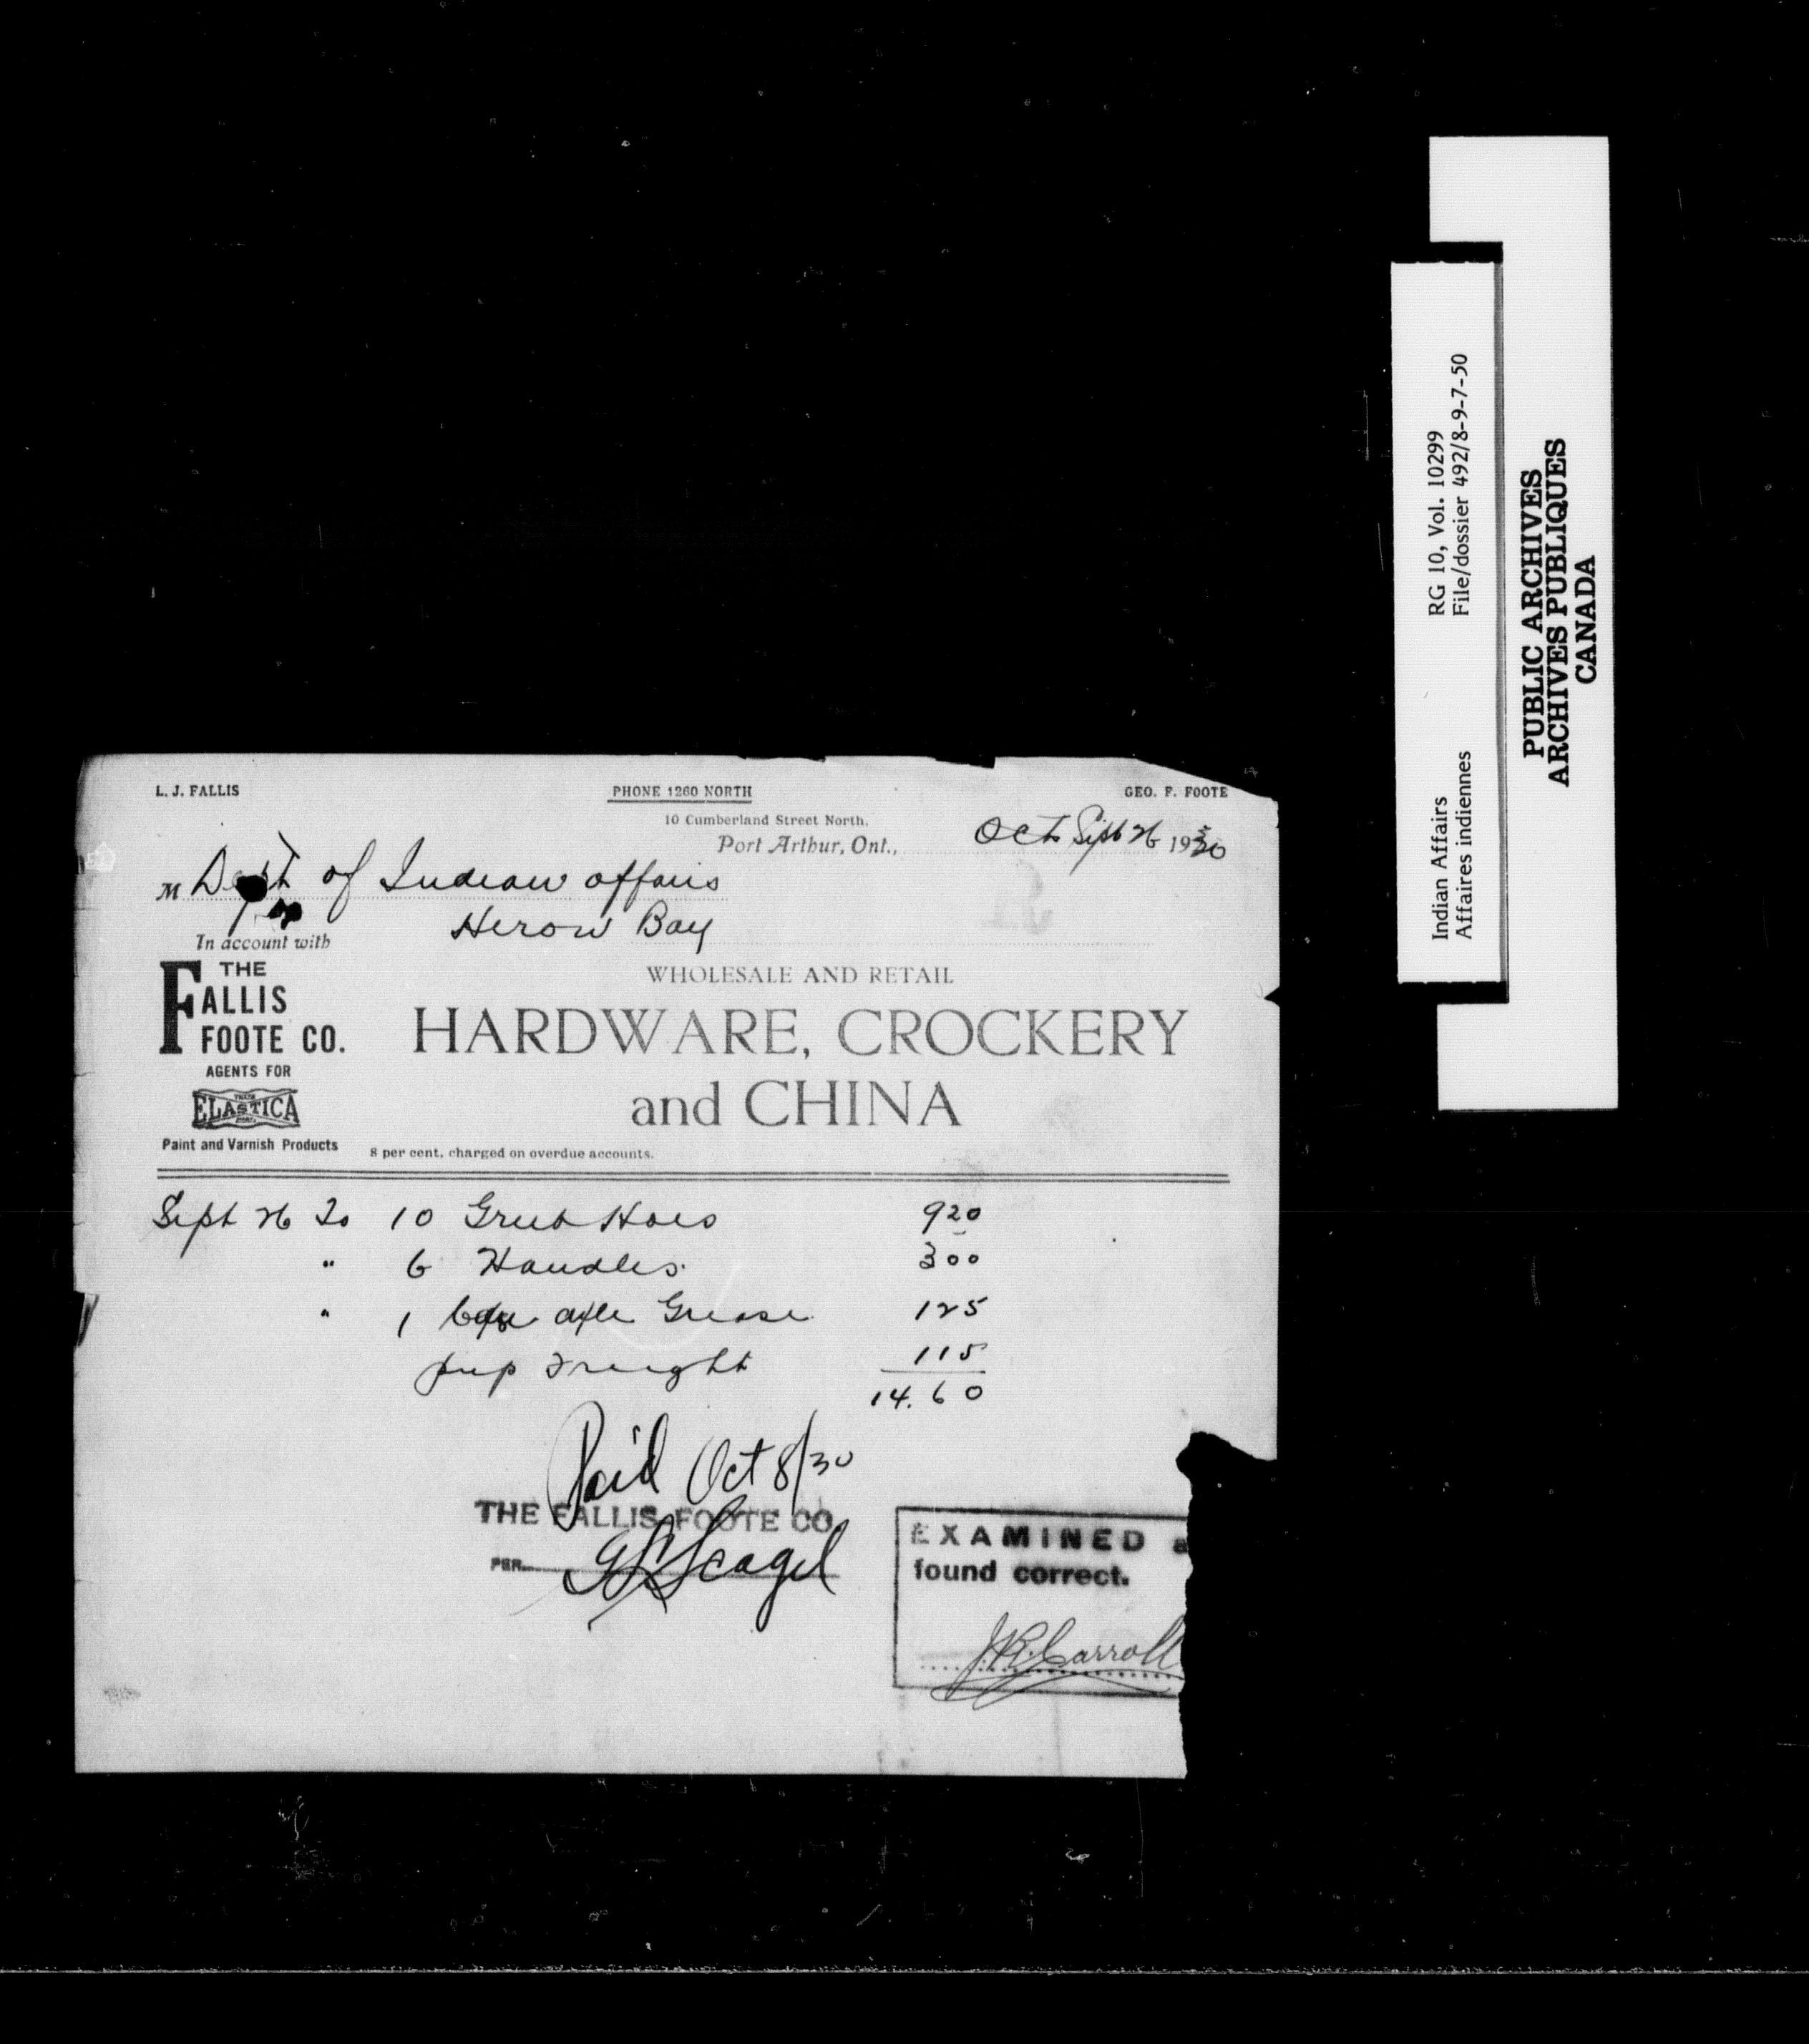 L. J. FALLIS
PHONE 1260 NORTH
GEO. F. FOOTE
10 Cumberland Street North,
Port Arthur, Ont., Oct Sept 26 1930
M Dept of Indian affairs
Heron Bay
In account with
THE FALLIS FOOTE CO.
AGENTS FOR
ELASTICA
Paint and Varnish Products
WHOLESALE AND RETAIL
HARDWARE, CROCKERY
and CHINA
8 per cent. charged on overdue accounts.
Sept 26 To 10 Grub Hoes 920
" 6 Handles 300
" 1 axle Grease 125
prep Freight 115
14.60
Paid Oct 8/30
THE FALLIS FOOTE CO.
PER
EXAMINED a
found correct.
J.R. Carroll
Indian Affairs RG 10, Vol. 10299
Affaires indiennes File/dossier 492/8-9-7-50
PUBLIC ARCHIVES
ARCHIVES PUBLIQUES
CANADA